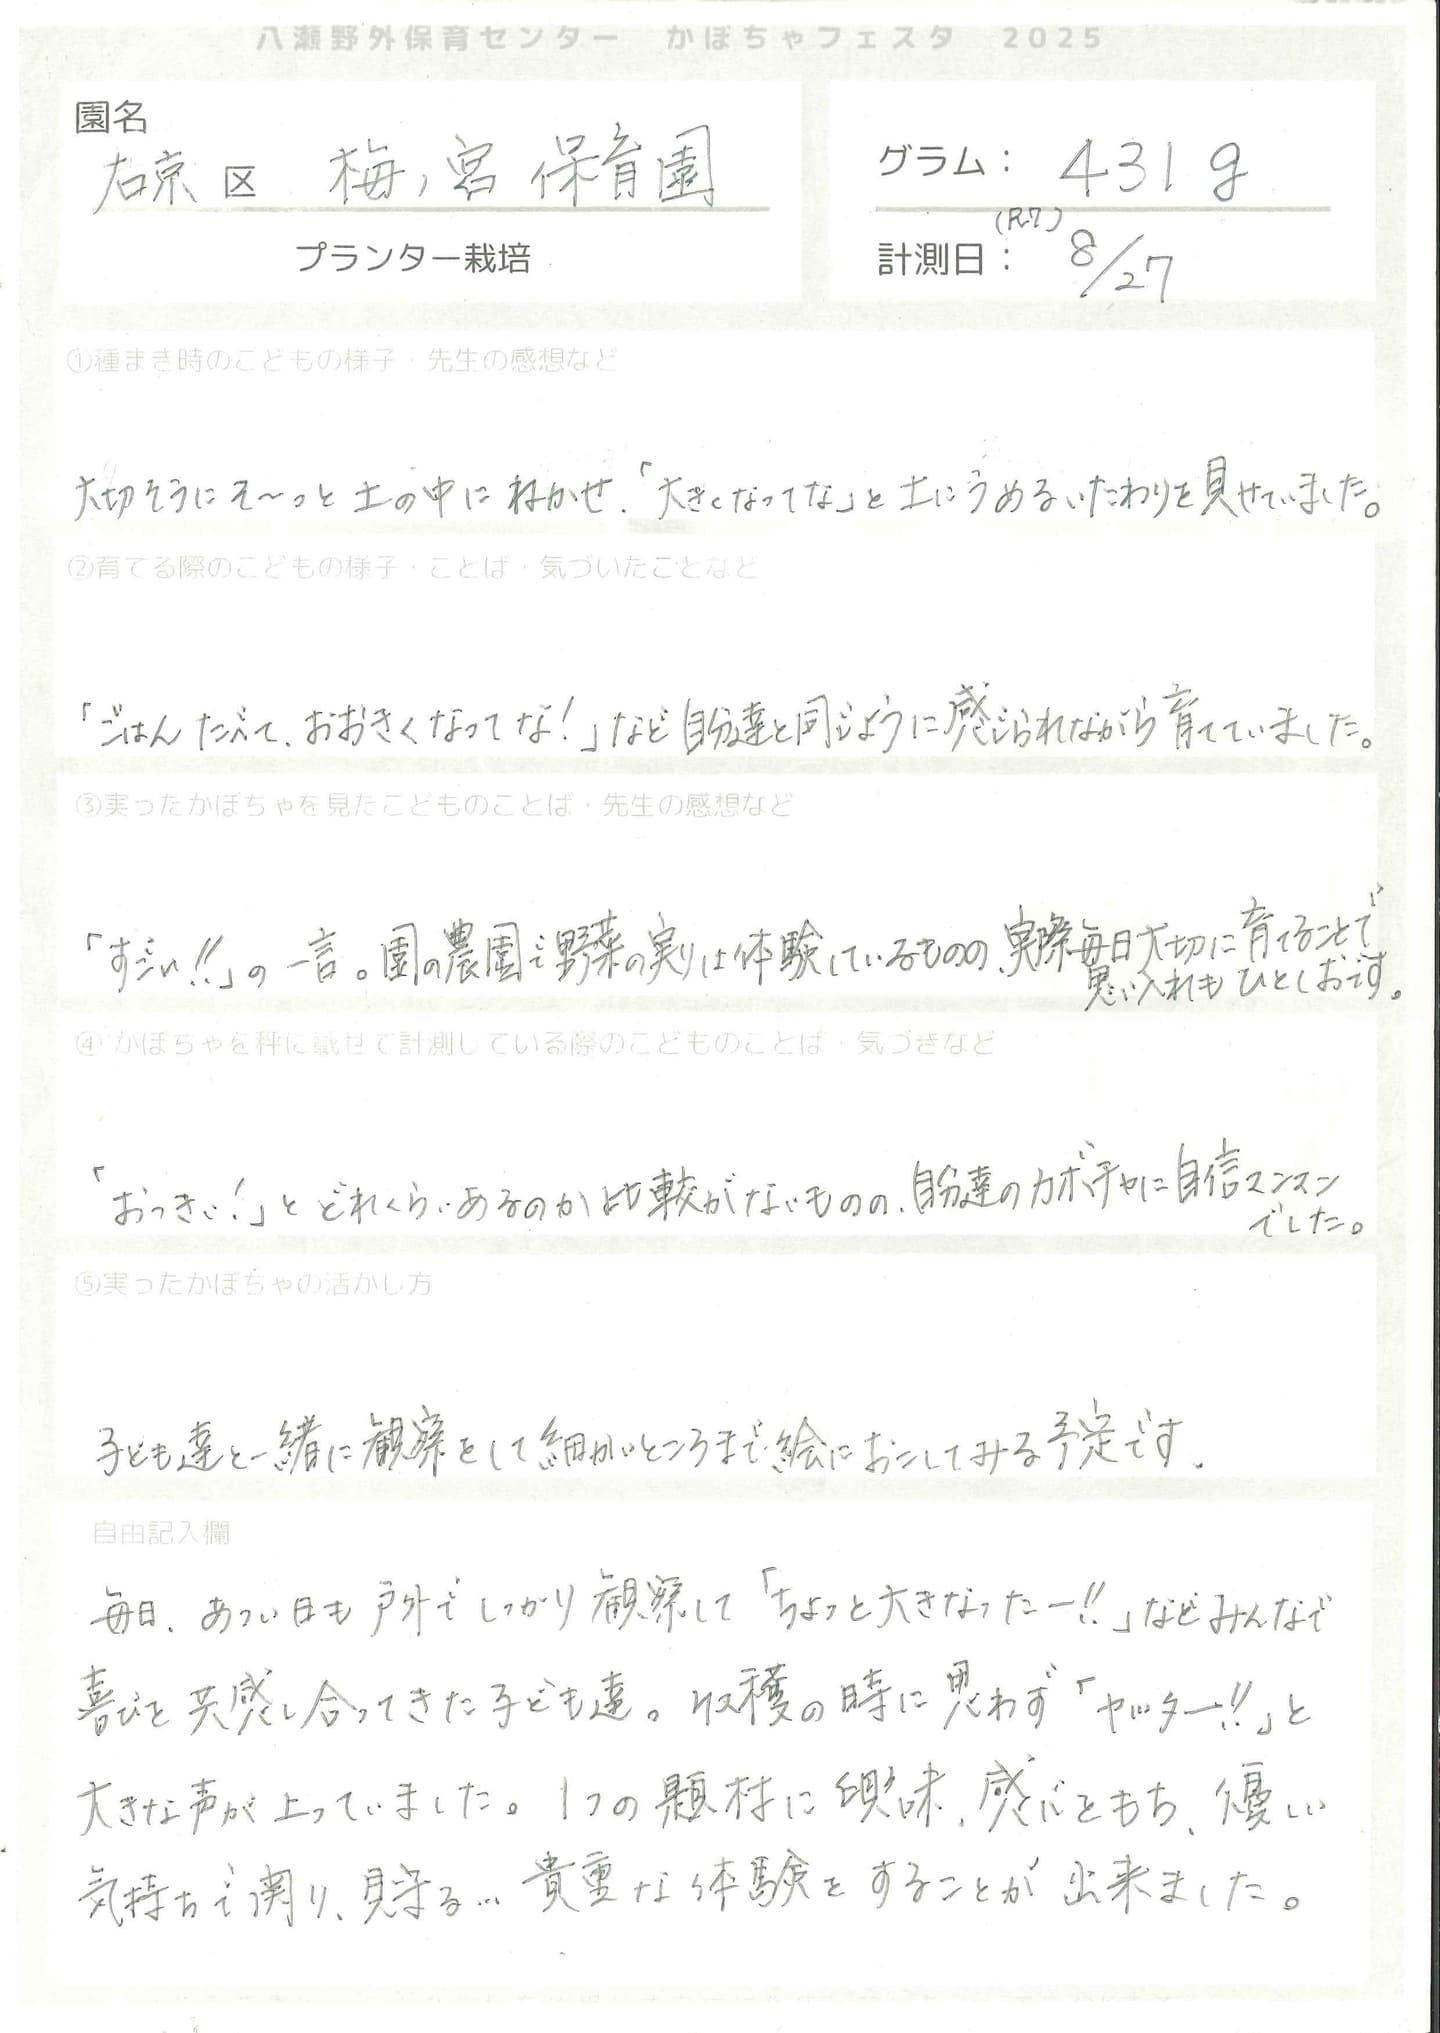 八瀬野外保育センター　かぼちゃフェスタ　2025
園名
右京区　梅ノ宮保育園
プランター栽培
グラム：431g
(R.7)
計測日：8/27
①種まき時のこどもの様子・先生の感想など
大切そうにそ～っと土の中にねかせ、「大きくなってな」と土にうめるいたわりを見せていました。
②育てる際のこどもの様子・ことば・気づいたことなど
「ごはんたべて、おおきくなってな！」など自分達と同じように感じられながら育てていました。
③実ったかぼちゃを見たこどものことば・先生の感想など
「すごい!!」の一言。園の農園で野菜の実りは体験しているものの、実際毎日大切に育てることで
思い入れもひとしおです。
④かぼちゃを秤に載せて計測している際のこどものことば・気づきなど
「おっきい！」とどれくらいあるのか比較がないものの、自分達のカボチャに自信スンスン
でした。
⑤実ったかぼちゃの活かし方
子ども達と一緒に観察をして細かいところまで絵におこしてみる予定です。
自由記入欄
毎日、あつい日も戸外でしっかり観察して「ちょっと大きなったー!!」などみんなで
喜びを共感し合ってきた子ども達。収穫の時に思わず「ヤッター!!」と
大きな声が上っていました。1つの題材に興味、感心をもち、優しい
気持ちで関り、見守る… 貴重な体験をすることが出来ました。